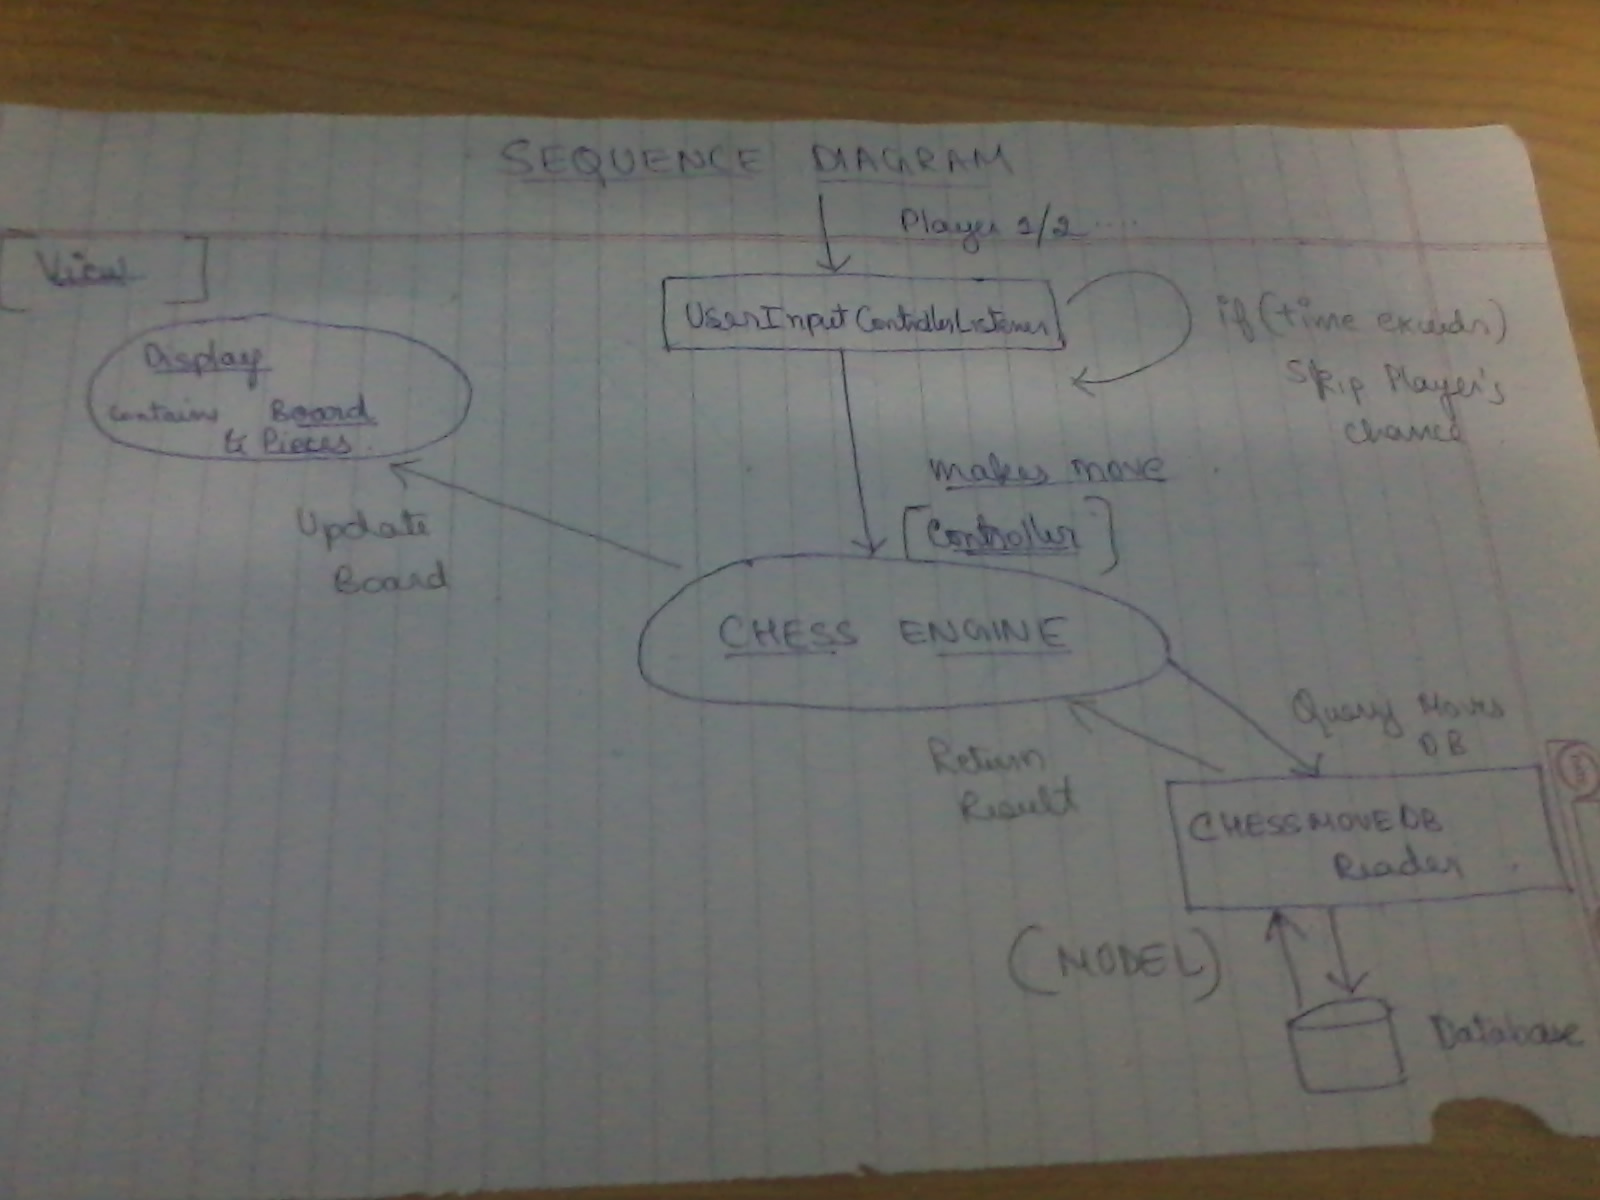 SEQUENCE DIAGRAM
Player 1/2 ....
[View]
UserInputControllerListener
if (time exceeds)
Skip Player's
chance
Display
contains Board
& Pieces.
makes move
[Controller]
Update
Board
CHESS ENGINE
Query Moves
DB
Return
Result
CHESSMOVEDB
Reader
(MODEL)
Database